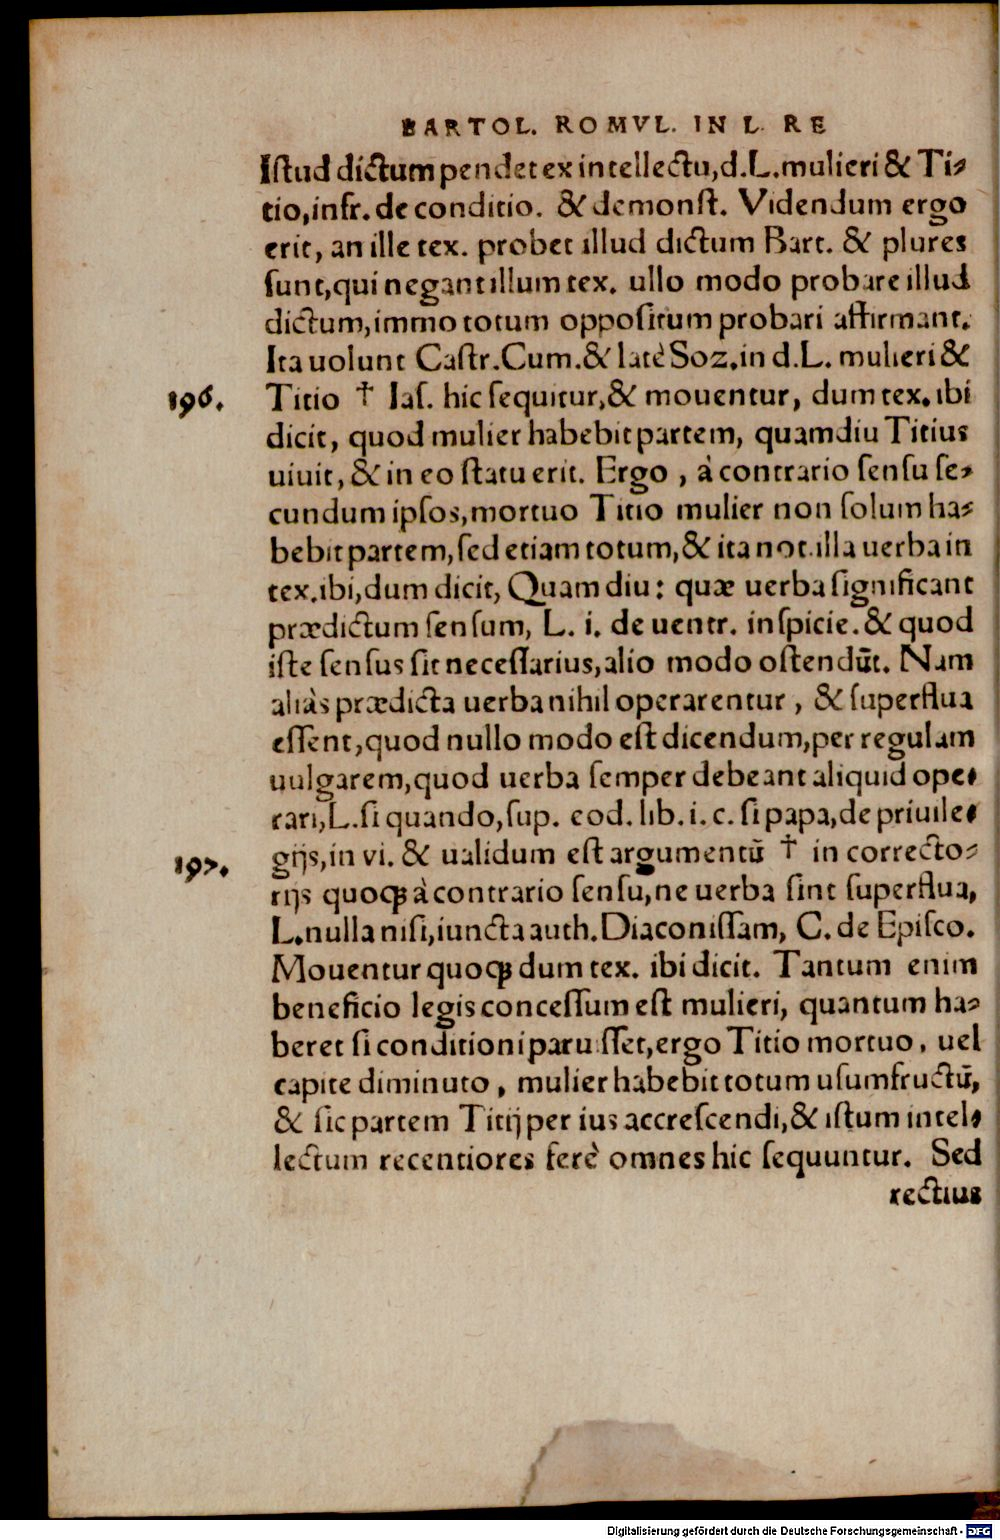 BARTOL. ROMVL. IN L. RE
Iſtud dictum pendet ex intellectu, d. L. mulieri & Ti-
tio, infr. de conditio. & demonſt. Videndum ergo
erit, an ille tex. probet illud dictum Bart. & plures
ſunt, qui negant illum tex. ullo modo probare illud
dictum, immo totum oppoſitum probari affirmant.
Ita uolunt Caſtr. Cum. & latè Soz. in d. L. mulieri &
196. Titio † Iaſ. hic ſequitur, & mouentur, dum tex. ibi
dicit, quod mulier habebit partem, quamdiu Titius
uiuit, & in eo ſtatu erit. Ergo, à contrario ſenſu ſe-
cundum ipſos, mortuo Titio mulier non ſolum ha-
bebit partem, ſed etiam totum, & ita not. illa uerba in
tex. ibi, dum dicit, Quam diu: quæ uerba ſignificant
prædictum ſenſum, L. i. de uentr. inſpicie. & quod
iſte ſenſus ſit neceſſarius, alio modo oſtendūt. Nam
aliàs prædicta uerba nihil operarentur, & ſuperflua
eſſent, quod nullo modo eſt dicendum, per regulam
uulgarem, quod uerba ſemper debeant aliquid ope-
rari, L. ſi quando, ſup. eod. lib. i. c. ſi papa, de priuile-
197. gijs, in vi. & ualidum eſt argumentū † in correcto-
rijs quoqꝫ à contrario ſenſu, ne uerba ſint ſuperflua,
L. nulla niſi, iuncta auth. Diaconiſſam, C. de Epiſco.
Mouentur quoqꝫ dum tex. ibi dicit. Tantum enim
beneficio legis conceſſum eſt mulieri, quantum ha-
beret ſi conditioni paruiſſet, ergo Titio mortuo, uel
capite diminuto, mulier habebit totum uſumfructū,
& ſic partem Titij per ius accreſcendi, & iſtum intel-
lectum recentiores ferè omnes hic ſequuntur. Sed
rectius
Digitalisierung gefördert durch die Deutsche Forschungsgemeinschaft - DFG